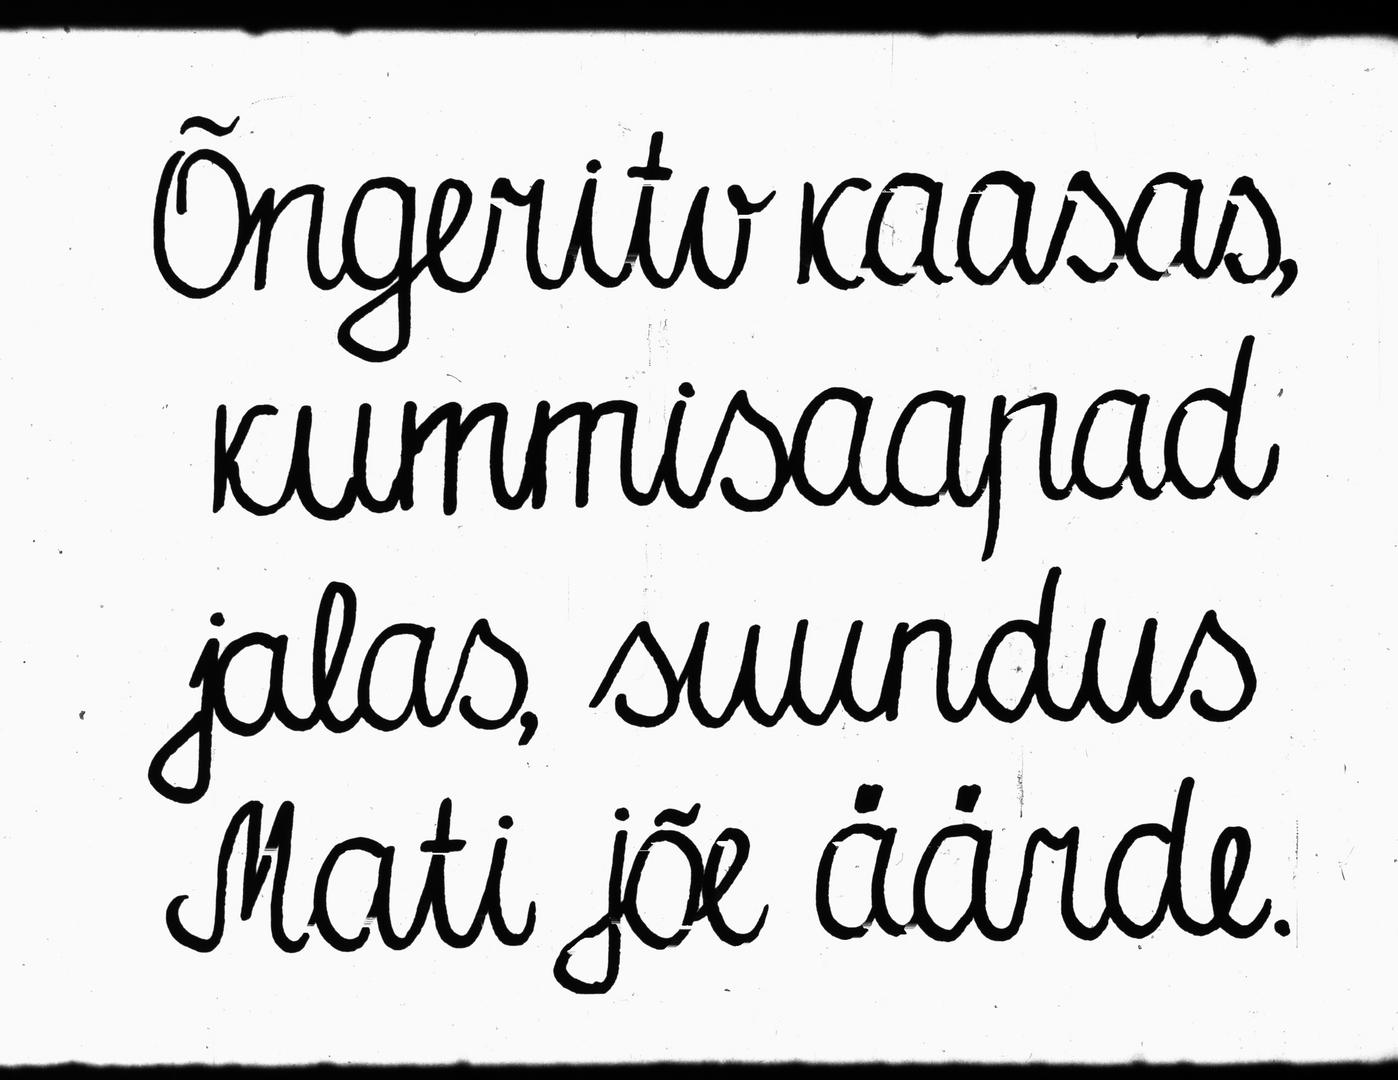 Õngeritv kaasas,
kummisaapad
jalas, suundus
Mati jõe äärde.